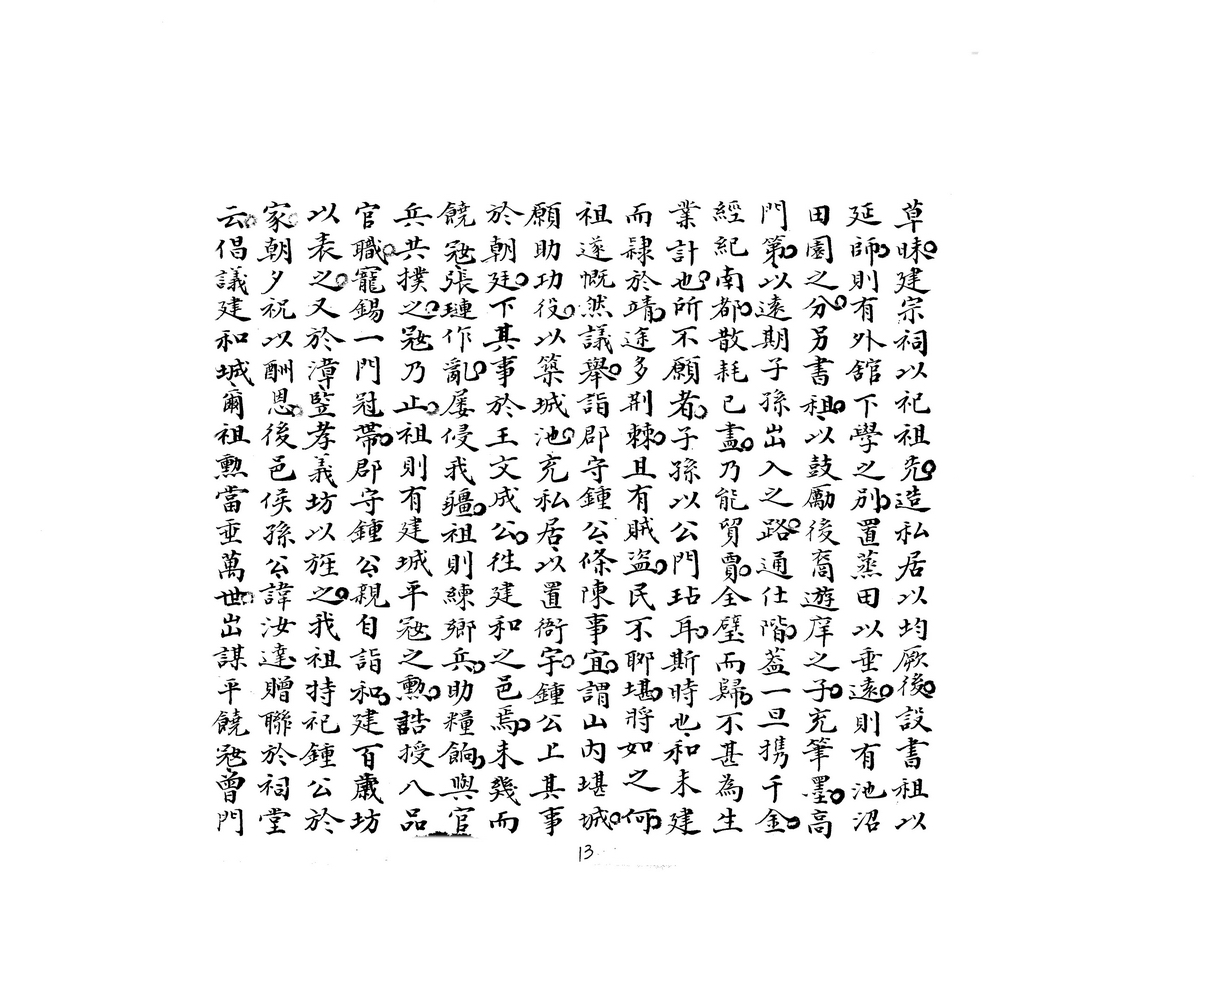 草昧。建宗祠以祀祖先。造私居以均厥後。設書祖以
延師。則有外舘下學之別。置蒸田以垂遠。則有池沼
田園之分。另書租。以鼓勵後裔遊庠之子。充筆墨。高
門第。以遠期子孫出入之路。通仕階。蓋一旦携千金。
經紀南都。散耗已盡。乃能貿賈。全璧而歸。不甚為生
業計也。所不願者。子孫以公門玷耳。斯時也、和未建
而隸於靖。途多荆棘。且有賊盜。民不聊堪。將如之何。
祖遂慨然議舉。詣郡守鍾公、條陳事宜。謂山內堪城。
願助功役。以築城池。充私居、以置衙宇。鍾公上其事
於朝廷。下其事於王文成公。徃建和之邑焉。未幾而
饒冦。張璉作亂。屢侵我疆。祖則練鄉兵。助糧餉。與官
兵共撲之。冦乃止。祖則有建城平冦之勲。誥授八品
官職。寵錫一門冠帶。郡守鍾公、親自詣和。建百歲坊
以表之。又於漳竪孝義坊以旌之。我祖持祀鍾公於
家。朝夕祝以酬恩。後邑侯孫公、諱汝達贈聯於祠堂
云。倡議建和城、爾祖勲當垂萬世。出謀平饒冦、曾門
13